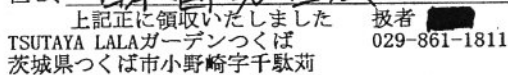 上記正に領収いたしました 扱者
TSUTAYA LALAガーデンつくば 029-861-1811
茨城県つくば市小野崎字千駄苅